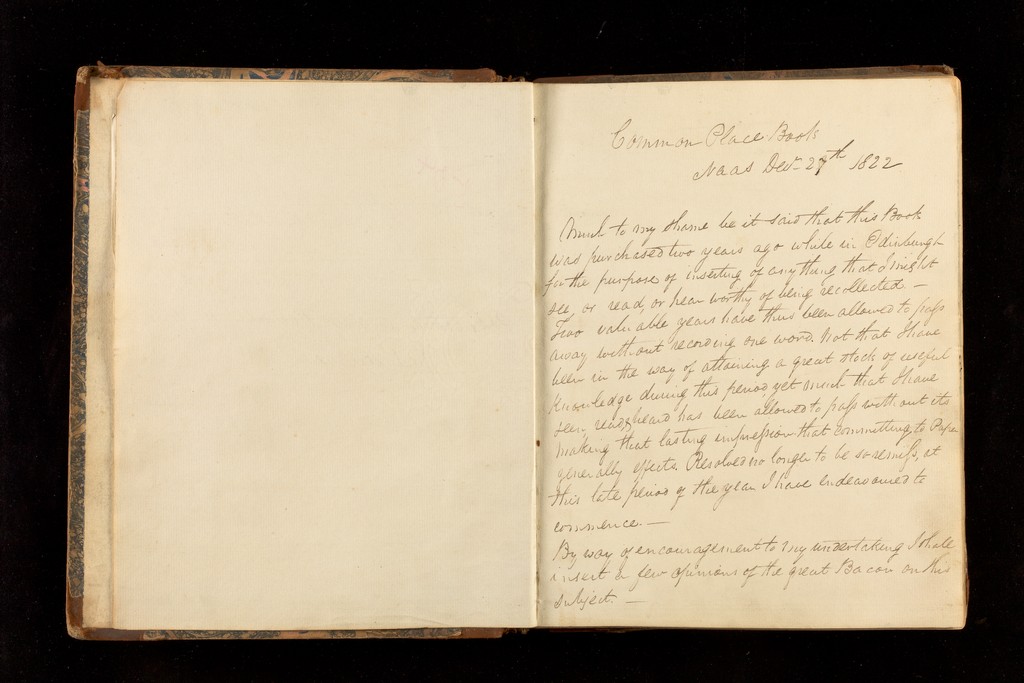 Common Place Book
Naas Decr 27th 1822
Much to my shame be it said that this Book
was purchased two years ago while in Edinburgh
for the purpose of inserting of anything that I might
see, or read, or hear worthy of being recollected. —
Two valuable years have thus been allowed to pass
away without recording one word. Not that I have
been in the way of attaining a great stock of useful
Knowledge during this period, yet much that I have
seen, read & heard has been allowed to pass without its
making that lasting impression that committing to Paper
generally effects. Resolved no longer to be so remiss, at
this late period of the year I have endeavoured to
commence. —
By way of encouragement to my undertaking I shall
insert a few opinions of the great Bacon on this
subject. —